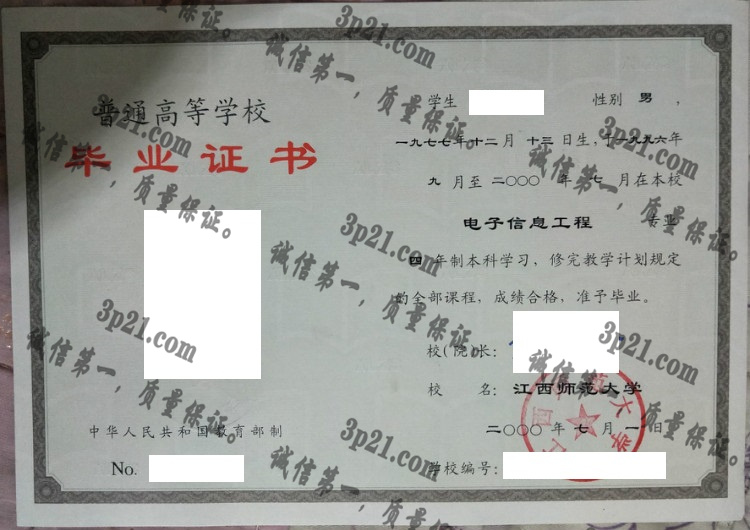 普通高等学校
毕业证书
中华人民共和国教育部制
No.
学生 性别 男，
一九七七年十二月 十三 日生，于一九九六年
九 月至 二〇〇〇 年 七 月在本校
电子信息工程 专业
四 年制本科学习，修完教学计划规定
的全部课程，成绩合格，准予毕业。
校(院)长：
校 名：江西师范大学
二〇〇〇 年 七 月 一 日
学校编号：
3p21.com
诚信第一，质量保证。
3p21.com
诚信第一，质量保证。
3p21.com
诚信第一，质量保证。
3p21.com
诚信第一，质量保证。
3p21.com
诚信第一，质量保证。
3p21.com
诚信第一，质量保证。
3p21.com
诚信第一，质量保证。